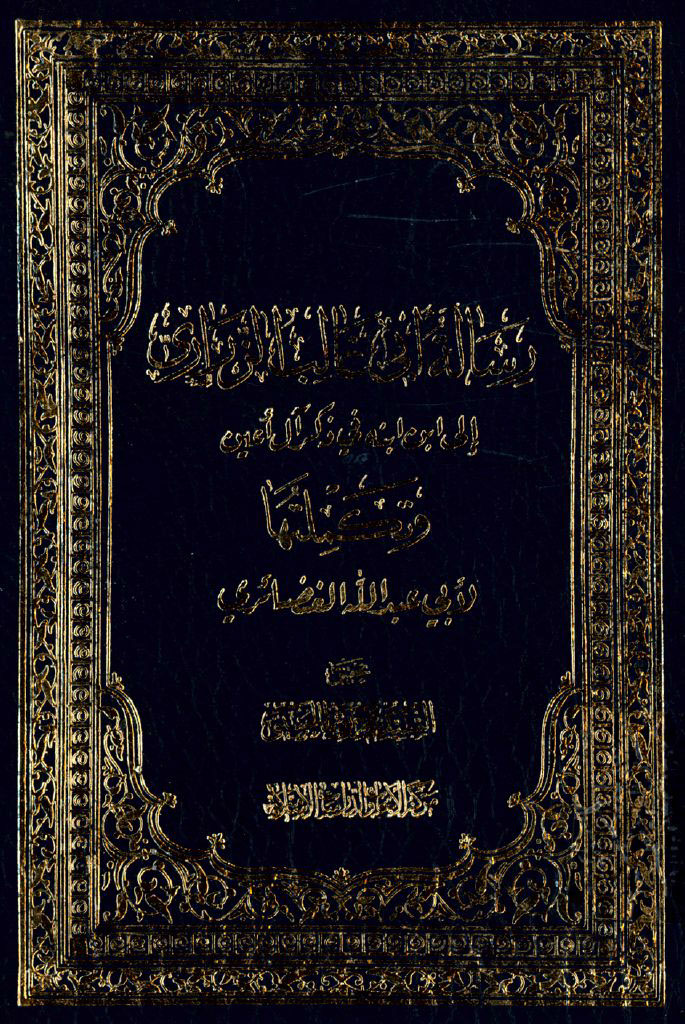 رِسَالَة أبي غَالِب الزُّرَارِيّ
إلى ابن ابنه في ذكر آل أعين
وَتَكمِلَتُهَا
لأبي عبد الله الغضائري
تحقيق
السيد محمد رضا الحسيني
مركز الأبحاث والدراسات الإسلامية